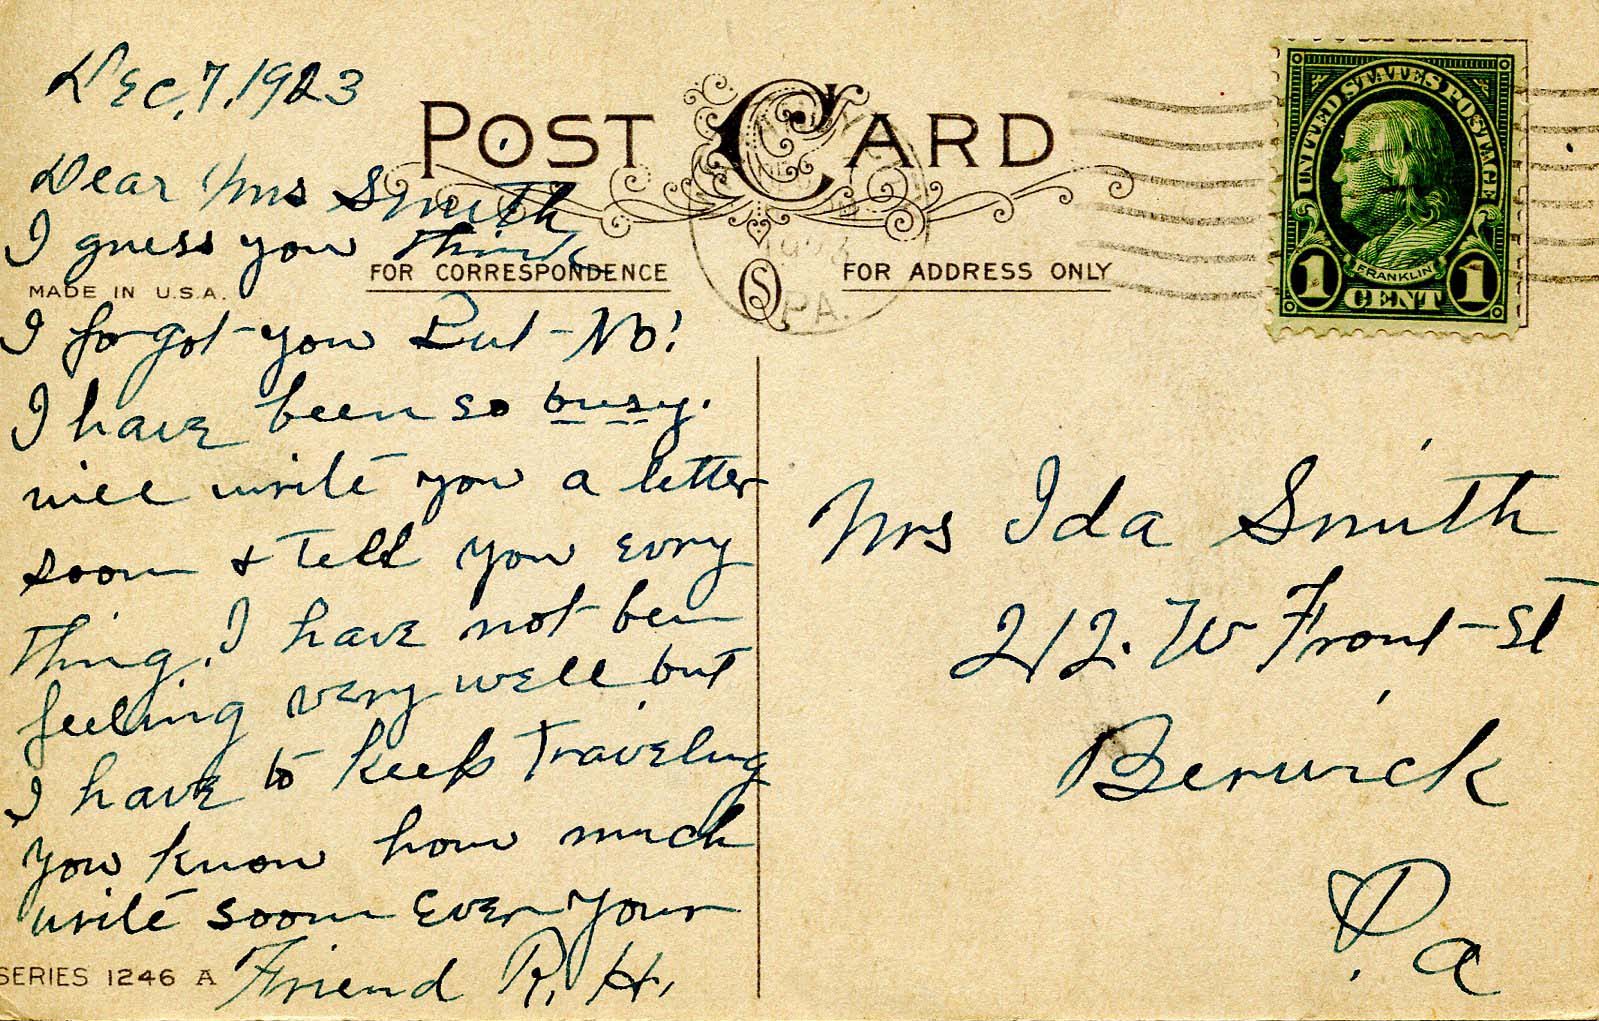 Dec, 7, 1923
POST CARD
Dear Mrs Smith
I guess you think
MADE IN U.S.A.
FOR CORRESPONDENCE
FOR ADDRESS ONLY
I forgot you But No!
I have been so busy.
will write you a letter
soon & tell you evry
thing. I have not been
feeling very well but
I have to keep traveling
you know how much
write soon Ever your
Friend R. H.
SERIES 1246 A
S
1923
PA.
UNITED STATES POSTAGE
FRANKLIN
1 CENT 1
Mrs Ida Smith
212. W Front St
Berwick
Pa